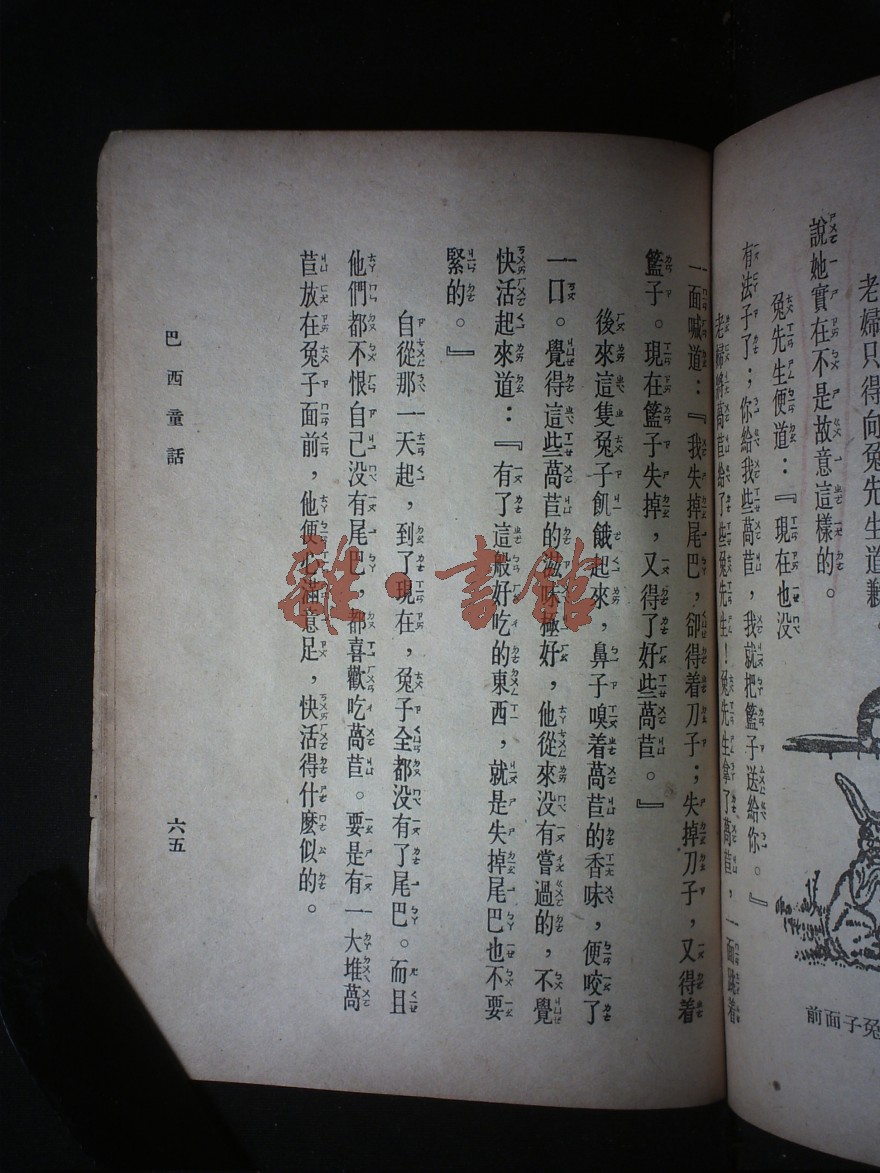 老婦只得向兔先生道歉，
說她實在不是故意這樣的。
兔先生便道：『現在也没
有法子了；你給我些萵苣，我就把籃子送給你。』
老婦將萵苣給了些兔先生！兔先生拿了萵苣，一面跳着
一面喊道：『我失掉尾巴，卻得着刀子；失掉刀子，又得着
籃子。現在籃子失掉，又得了好些萵苣。』
後來這隻兔子飢餓起來，鼻子嗅着萵苣的香味，便咬了
一口。覺得這些萵苣的滋味極好，他從來没有嘗過的，不覺
快活起來道：『有了這般好吃的東西，就是失掉尾巴也不要
緊的。』
自從那一天起，到了現在，兔子全都没有了尾巴。而且
他們都不恨自己没有尾巴，都喜歡吃萵苣。要是有一大堆萵
苣放在兔子面前，他便心滿意足，快活得什麽似的。
巴西童話
六五
兔子面前
雜·書館